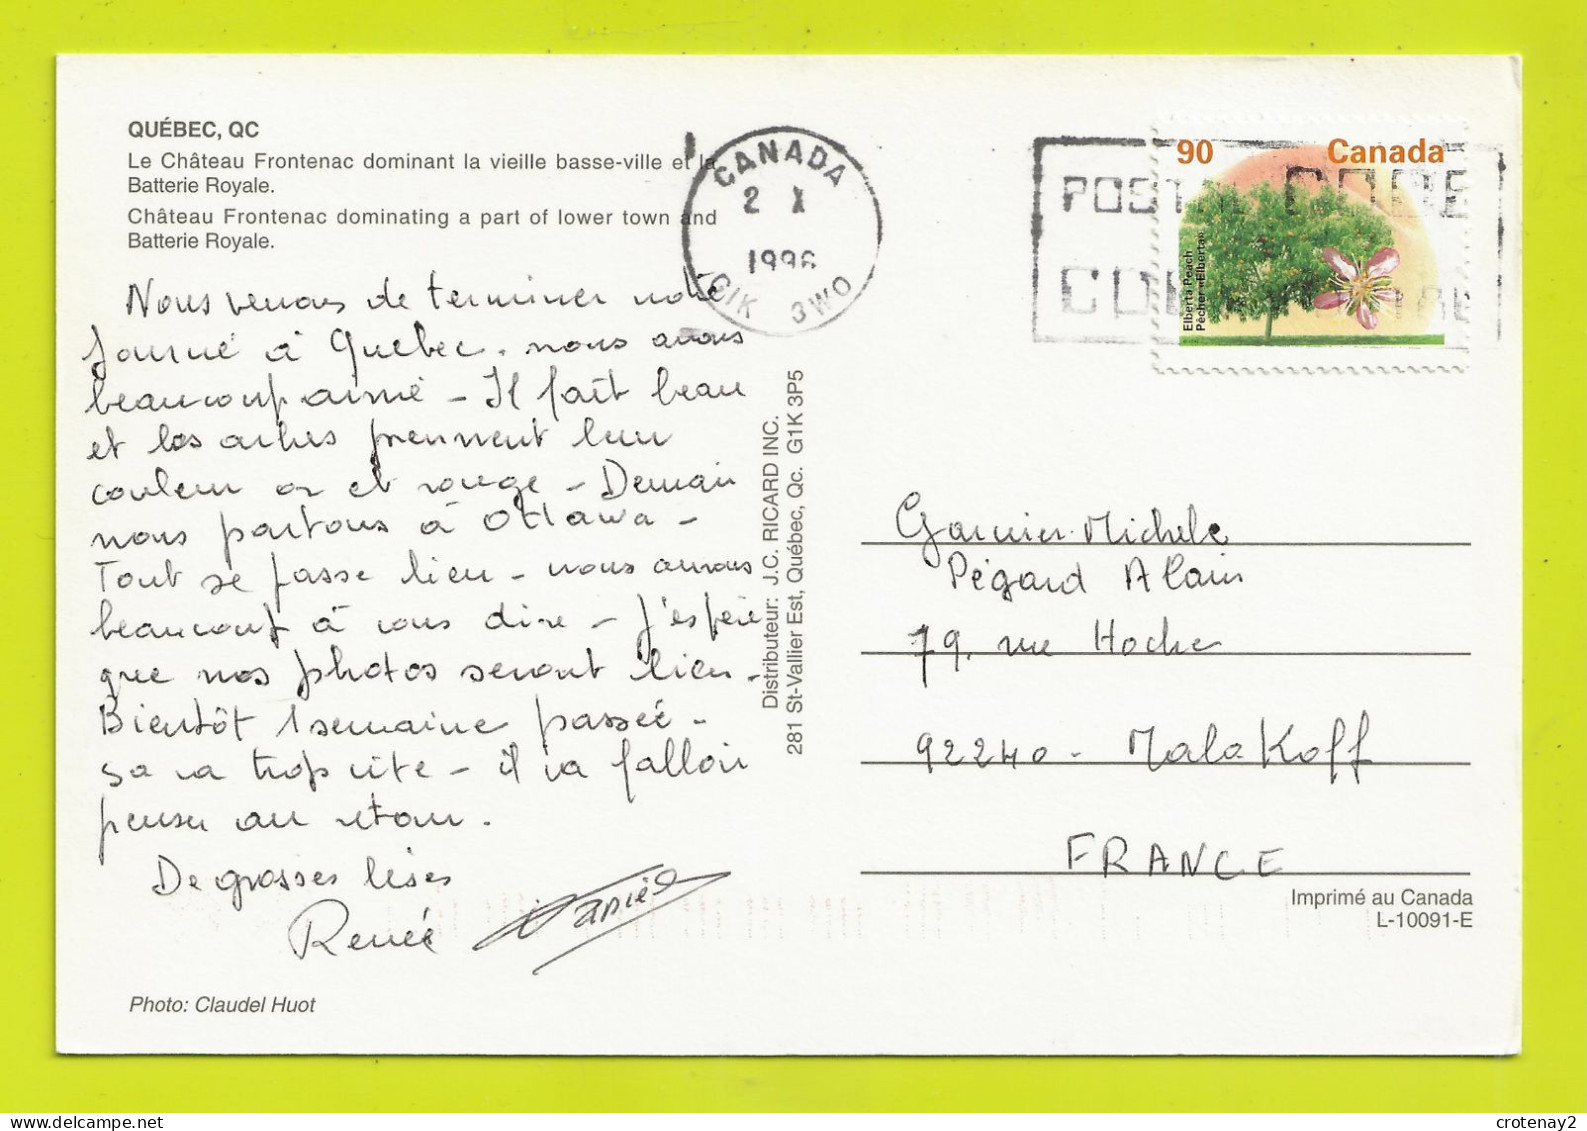 QUÉBEC, QC
Le Château Frontenac dominant la vieille basse-ville et la
Batterie Royale.
Château Frontenac dominating a part of lower town and
Batterie Royale.
Nous venons de terminer notre
journée à Québec. nous avons
beaucoup aimé - Il fait beau
et les arbres prennent leur
couleur or et rouge - Demain
nous partons à Ottawa -
Tout se passe bien - nous aurons
beaucoup à vous dire - J'espère
que nos photos seront bien -
Bientôt 1 semaine passée -
sa va trop vite - il va falloir
penser au retour.
De grosses bises
Renée Daniel
Photo: Claudel Huot
Distributeur: J.C. RICARD INC.
281 St-Vallier Est, Québec, Qc. G1K 3P5
CANADA
2 X
1996
G1K 3W0
POSTAL CODE
CODE POSTAL
90 Canada
Elberta Peach
Pêcher «Elberta»
Garnier Michele
Pégard Alain
79, rue Hoche
92240 - Malakoff
FRANCE
Imprimé au Canada
L-10091-E
crotenay2